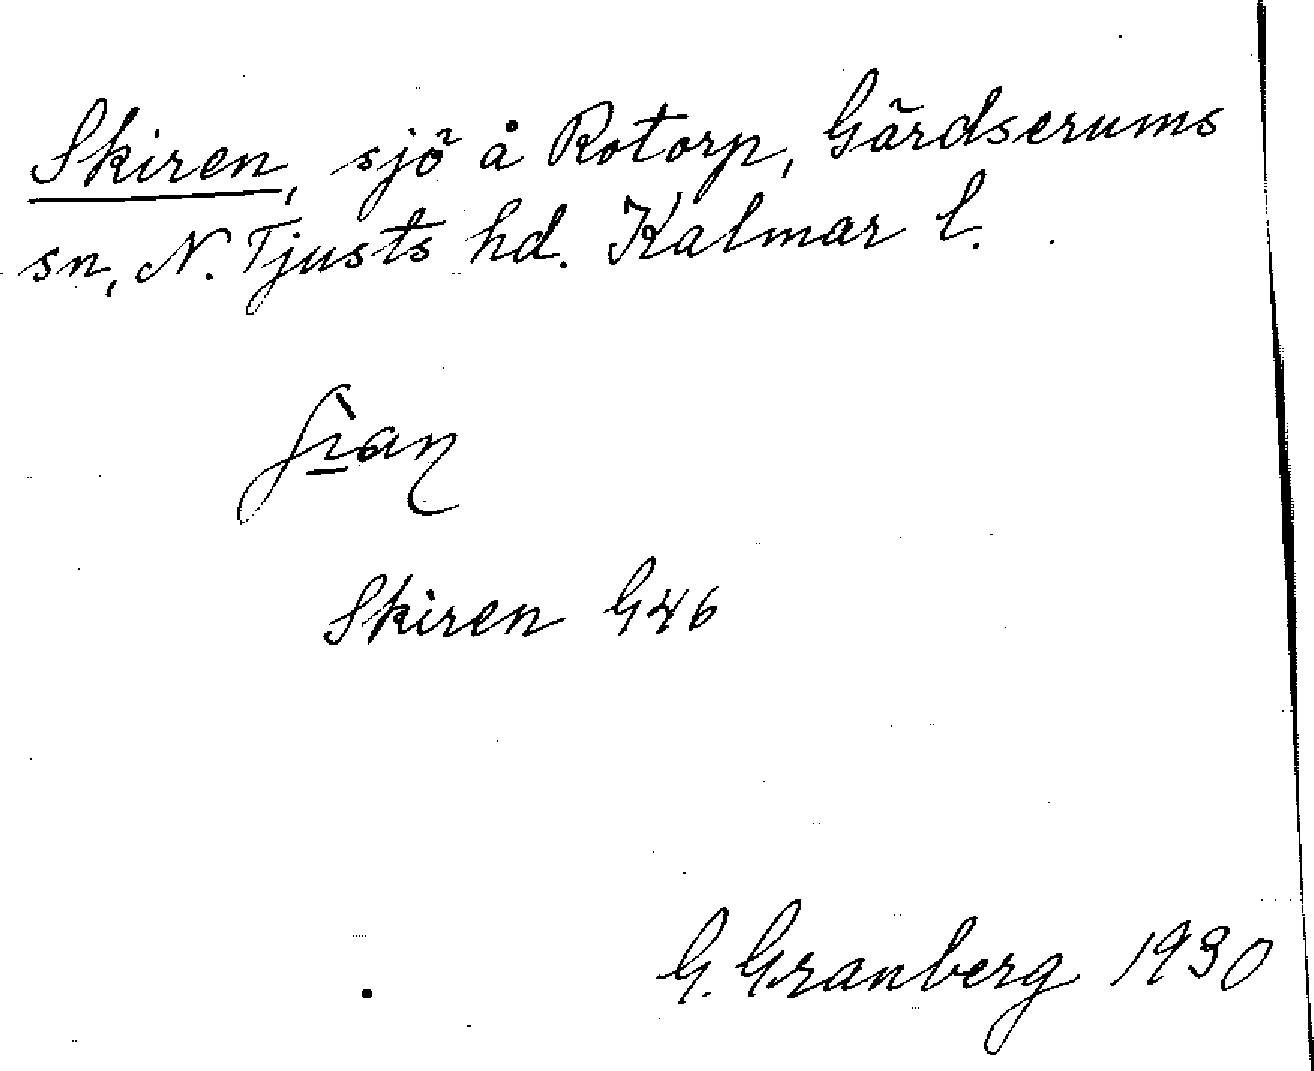 Skiren, sjö å Rotorp, Gärdserums
sn, N. Tjusts hd. Kalmar l.
Skiren G46
G. Granberg 1930